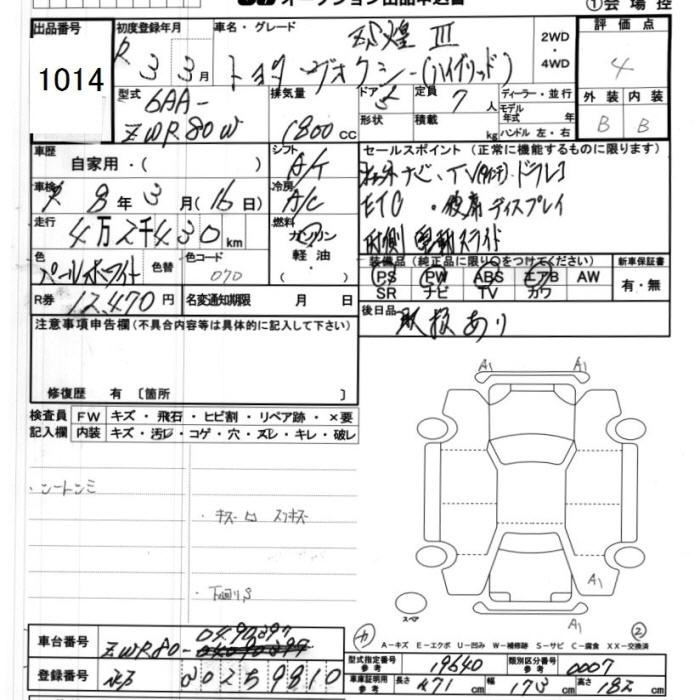 オークション出品申込書
①会場控
出品番号
1014
初度登録年月
R 3 3月
車名・グレード
煌 Ⅲ
トヨタ ヴォクシー(ハイブリッド)
2WD
・
4WD
評価点
4
外装 内装
B B
型式
6AA-
ZWR80W
排気量
1800cc
ドア
5
定員
7人
形状
積載
kg
ディーラー・並行
モデル
年式 年
ハンドル 左・右
車歴
自家用・( )
シフト
A/T
車検
R 8年3月(16日)
冷房
A/C
走行
4万2千430km
燃料
ガソリン
軽油
・
( )
色
パールホワイト
色替
色コード
070
R券
12,470円
名変通知期限 月 日
セールスポイント(正常に機能するものに限ります)
ナビ、TV ドラレコ
ETC ・後席ディスプレイ
両側電動スライド
装備品(純正品に限り○をつけてください)
PS PW ABS エアB AW
SR ナビ TV カワ
新車保証書
有・無
後日品
取扱あり
注意事項申告欄(不具合内容等は具体的に記入して下さい)
修復歴 有〔箇所 〕
検査員
記入欄
FW キズ・飛石・ヒビ割・リペア跡・×要
内装 キズ・汚レ・コゲ・穴・スレ・キレ・破レ
・シートシミ
・下回りS
A1 A1
A1
A1
スペア
②
A−キズ E−エクボ U−凹み W−補修跡 S−サビ C−腐食 XX−交換済
車台番号
ZWR80-0490897
登録番号
302 5 9810
型式指定番号
参考
19640
類別区分番号
参考
0007
車庫証明用
参考
長さ 471cm 幅 173cm 高さ 182cm